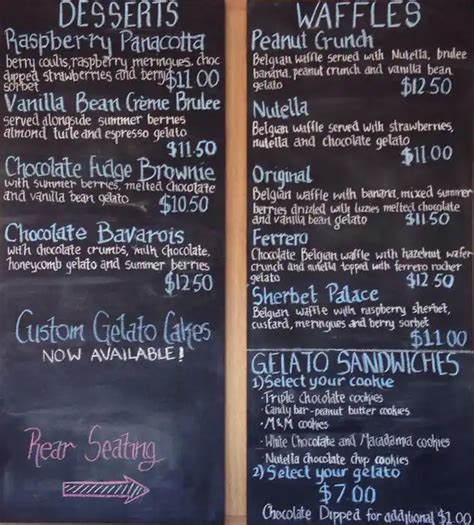 DESSERTS
Raspberry Panacotta
berry coulis, raspberry meringues, choc
dipped strawberries and berry
sorbet $11.00
Vanilla Bean Crème Brulee
served alongside summer berries
almond tuile and espresso gelato
$11.50
Chocolate Fudge Brownie
with summer berries, melted chocolate
and vanilla bean gelato $10.50
Chocolate Bavarois
with chocolate crumbs, milk chocolate,
honeycomb gelato and summer berries
$12.50
Custom Gelato Cakes
NOW AVAILABLE!
Rear Seating
WAFFLES
Peanut Crunch
Belgian waffle served with Nutella, brulee
banana, peanut crunch and vanilla bean
gelato $12.50
Nutella
Belgian waffle served with strawberries,
nutella and chocolate gelato
$11.00
Original
Belgian waffle with banana, mixed summer
berries drizzled with lizzies melted chocolate
and vanilla bean gelato $11.50
Ferrero
Chocolate Belgian waffle with hazelnut wafer
crunch and nutella topped with ferrero rocher
gelato $12.50
Sherbet Palace
Belgian waffle with raspberry sherbet,
custard, meringues and berry sorbet
$11.00
GELATO SANDWICHES
1) Select your cookie
• Triple chocolate cookies
• Candy bar - peanut butter cookies
• M&M cookies
• White Chocolate and Macadamia cookies
• Nutella chocolate chip cookies
2) Select your gelato
$7.00
Chocolate Dipped for additional $1.00